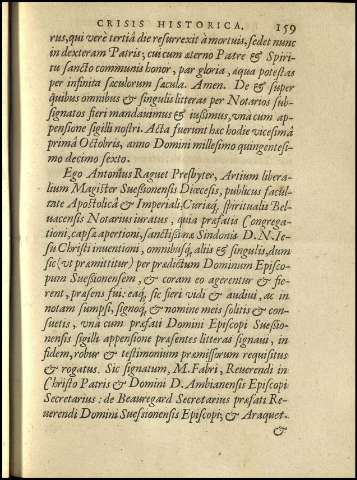 CRISIS HISTORICA. 159
rus, qui verè tertiâ die resurrexit à mortuis, sedet nunc
in dexteram Patris; cui cum æterno Patre & Spiri-
tu sancto communis honor, par gloria, æqua potestas
per infinita sæculorum sæcula. Amen. De & super
quibus omnibus & singulis litteras per Notarios sub-
signatos fieri mandauimus & iussimus, vnà cum ap-
pensione sigilli nostri. Acta fuerunt hæc hodie vicesimâ
primâ Octobris, anno Domini millesimo quingentesi-
mo decimo sexto.
Ego Antonius Raguet Presbyter, Artium libera-
lium Magister Suessionensis Diœcesis, publicus facul-
tate Apostolicâ & Imperiali, Curiæq, spiritualis Bel-
uacensis Notarius iuratus, quia præfatis Congrega-
tioni, capsæ apertioni, sanctissimæ Sindonis D. N. Ie-
su Christi inuentioni, omnibusq, aliis & singulis, dum
sic (vt præmittitur) per prædictum Dominum Episco-
pum Suessionensem, & coram eo agerentur & fie-
rent, præsens fui: eaq, sic fieri vidi & audiui, ac in
notam sumpsi, signoq, & nomine meis solitis & con-
suetis, vnà cum præfati Domini Episcopi Suessio-
nensis sigilli appensione præsentes litteras signaui, in
fidem, robur & testimonium præmissorum requisitus
& rogatus. Sic signatum, M. Fabri, Reuerendi in
Christo Patris & Domini D. Ambianensis Episcopi
Secretarius: de Beauregard Secretarius præfati Re-
uerendi Domini Suessionensis Episcopi; & Araquet.
&